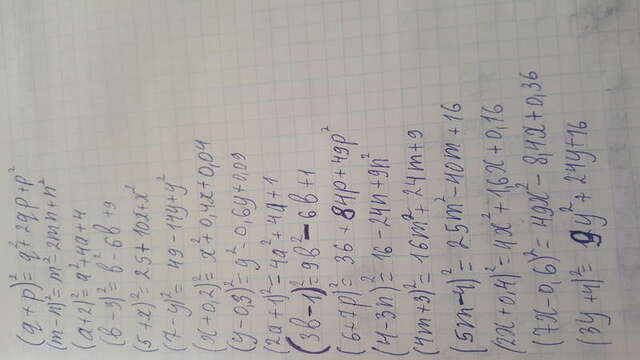 (q+p)²=q²+2qp+p²
(m-n)²=m²2mn+n²
(a+2)²=a²+4a+4
(b-3)²=b²-6b+9
(5+x)²=25+10x+x²
(7-y)²=49-14y+y²
(x+0,2)²=x²+0,4x+0,04
(y-0,3)²=y²-0,6y+0,09
(2a+1)²=4a²+4a+1
(3b-1)²9b²-6b+1
(6+7p)²=36+84p+49p²
(4-3n)²=16-24n+9n²
(4m+3)²=16m²+24m+9
(5m-4)²=25m²-40m+16
(2x+0,4)²=4x²+1,6x+0,16
(7x-0,6)²=49x²-8,4x+0,36
(3y+4)²=9y²+24y+16